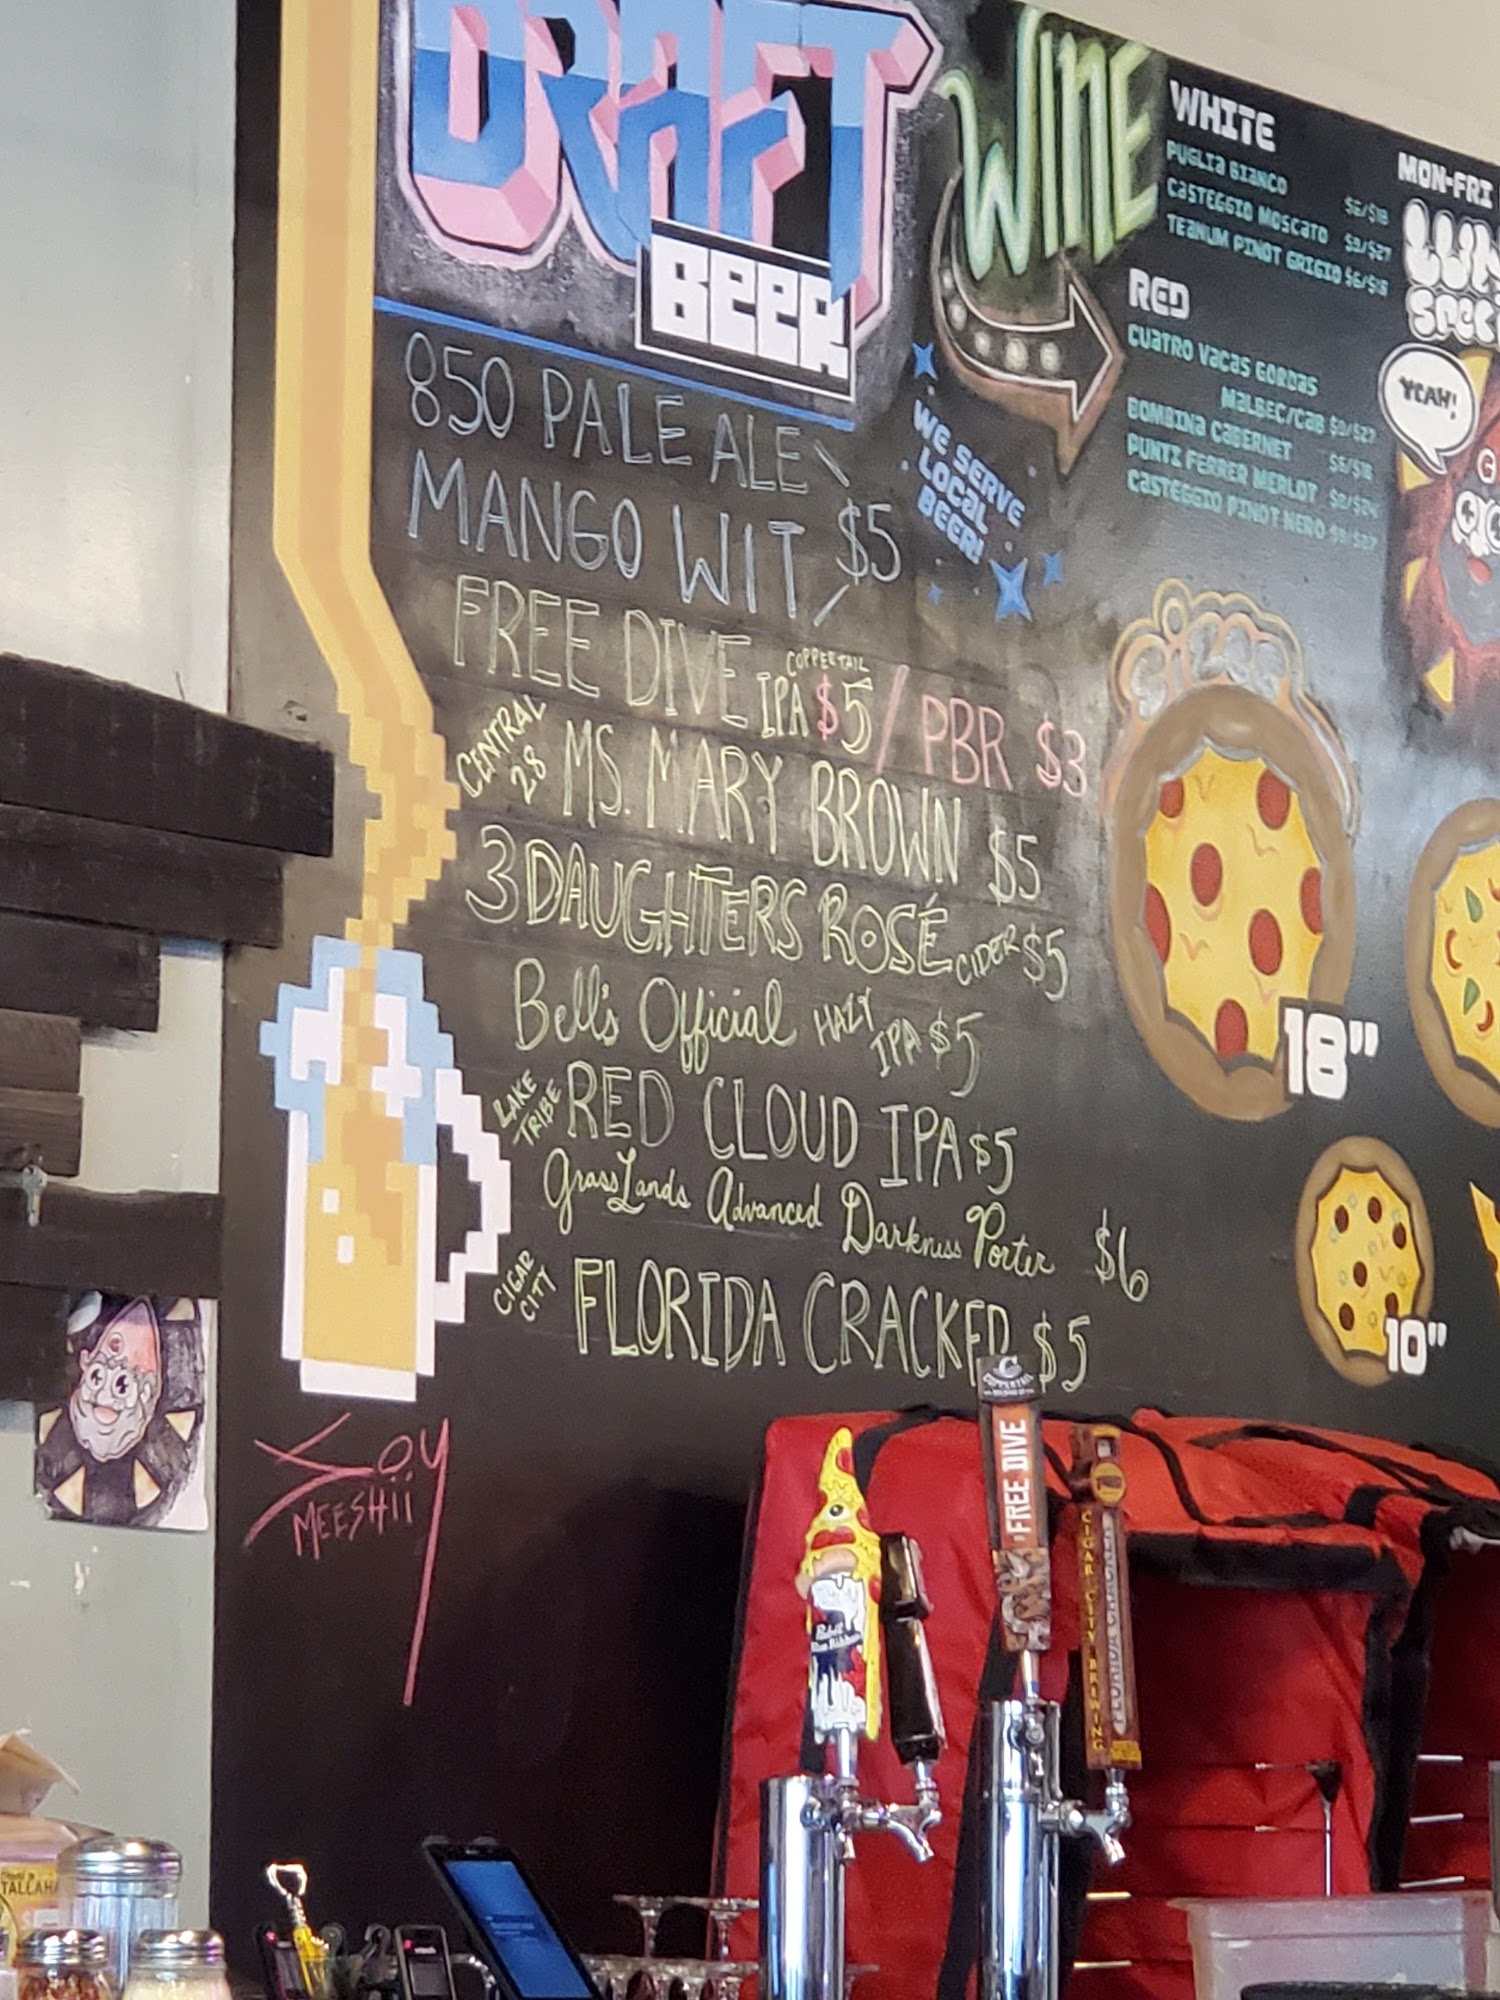 DRAFT
BEER
850 PALE ALE
MANGO WIT $5
FREE DIVE IPA COPPERTAIL $5 / PBR $3
CENTRAL 28 MS. MARY BROWN $5
3 DAUGHTERS ROSÉ CIDER $5
Bell's Official HAZY IPA $5
LAKE TRIBE RED CLOUD IPA $5
GrassLands Advanced Darkness Porter $6
CIGAR CITY FLORIDA CRACKER $5
WE SERVE
LOCAL
BEER!
WINE
WHITE
PUGLIA BIANCO $6/$18
CASTEGGIO MOSCATO $9/$27
TEANUM PINOT GRIGIO $6/$18
RED
CUATRO VACAS GORDAS
MALBEC/CAB $9/$27
BOMBINA CABERNET $6/$18
PUNTI FERRER MERLOT $8/$24
CASTEGGIO PINOT NERO $9/$27
MON-FRI
YEAH!
SIZES
18"
10"
SOY
MEESHii
COPPERTAIL
FREE DIVE
Pabst
Blue Ribbon
CIGAR CITY BREWING
FLORIDA CRACKER
TALLAH